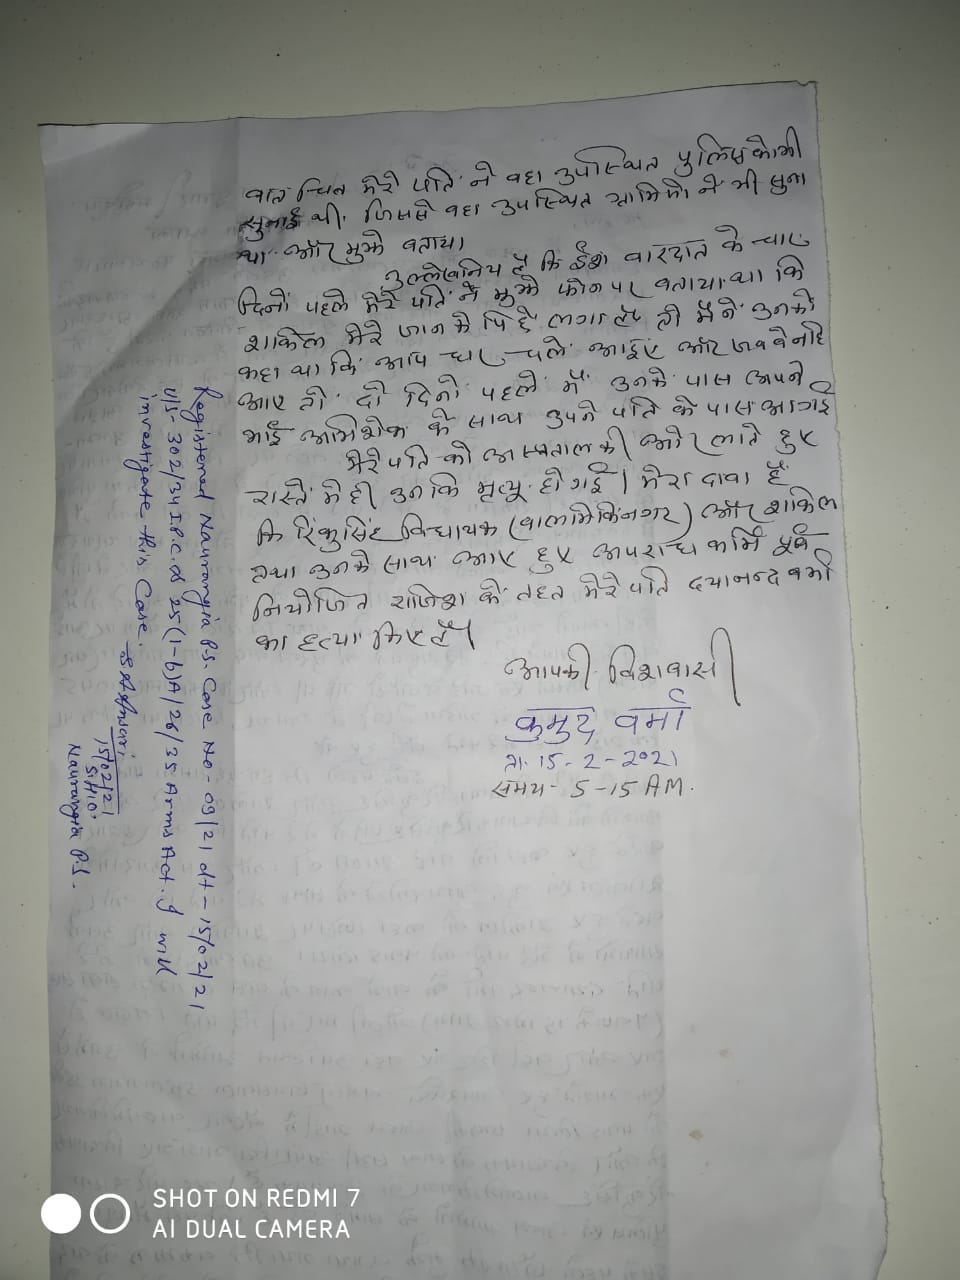 बात चित मेरे पति ने वहा उपस्थित पुलिस को भी
सुनाई थी, जिससे वहा उपस्थित ने भी सुना
था और मुझे बताया।
उल्लेखनिय है कि ईश वारदात के चार
दिनों पहले मेरे पति ने मुझे फोन पर बताया था कि
शकिल मेरे जान मे पिछे लगा है, तो मैने उनको
कहा था कि आप घर चले आईए और जब वे नहि
आए तो दो दिनो पहले मैं उनके पास अपने
भाई अभिशेक के साथ अपने पति के पास आ गई
मेरे पति को अस्पताल की ओर लाते हुए
रास्ते मे ही उनकि मृत्यू हो गई। मेरा दावा है
कि रिंकु सिंह विधायक (वालमिकिनगर) और शकिल
तथा उनके साथ आए हुए अपराध कर्मि पूर्व
नियोजित साजिश के तहत मेरे पति दयानन्द वर्मा
का हत्या किए है।
आपकी विशवासी
कुमुद वर्मा
ता. 15-2-2021
समय- 5-15 AM.
Registered Naurangia P.S. Case No- 09/21 dt- 15/02/21
U/S- 302/34 I.P.C. & 25(1-b)A/26/35 Arms Act. I will
investigate this Case.
15/02/21
S.H.O.
Naurangia P.S.
SHOT ON REDMI 7
AI DUAL CAMERA